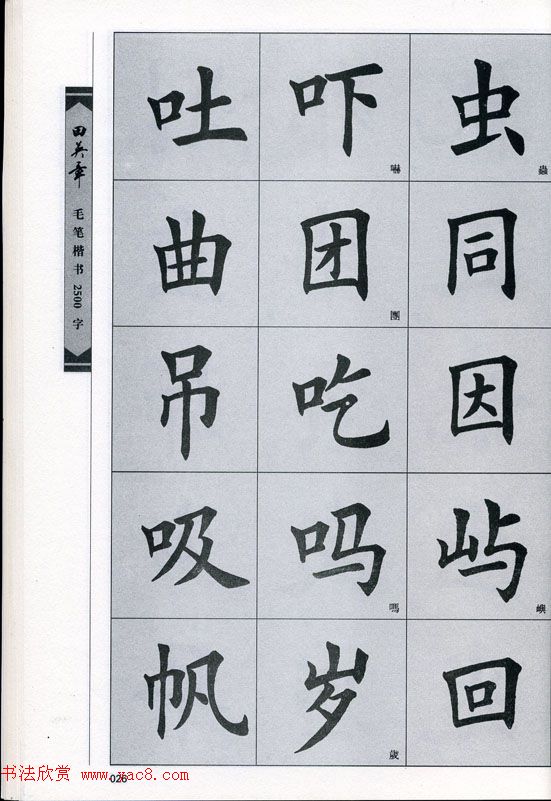 田英章 毛笔楷书 2500 字
吐 吓 嚇 虫 蟲
曲 团 團 同
吊 吃 因
吸 吗 嗎 屿 嶼
帆 岁 歲 回
026
书法欣赏 www.yac8.com